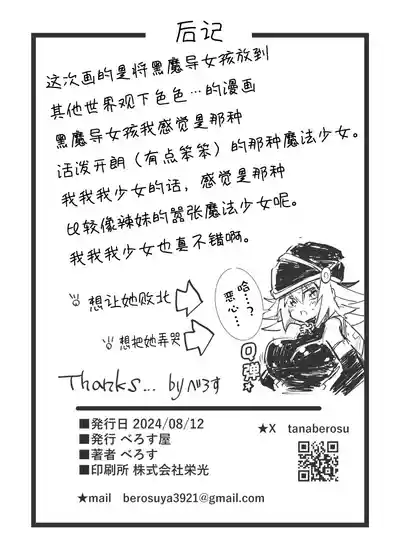 后记
这次画的是将黑魔导女孩放到
其他世界观下色色…的漫画
黑魔导女孩我感觉是那种
活泼开朗（有点笨笨）的那种魔法少女。
我我我少女的话，感觉是那种
比较像辣妹的嚣张魔法少女呢。
我我我少女也真不错啊。
哈…？
恶心…
想让她败北
想把她弄哭
Q弹
Thanks... by べろす
■発行日 2024/08/12
■発行 べろす屋
■著者 べろす
■印刷所 株式会社栄光
★X tanaberosu
★mail berosuya3921@gmail.com